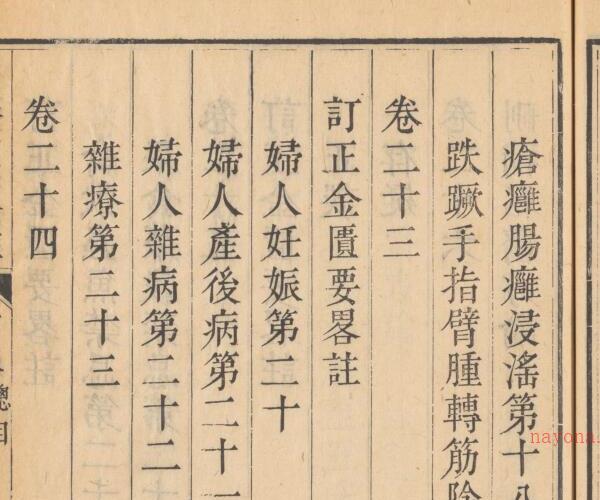 瘡癰腸癰浸淫第十八
趺蹶手指臂腫轉筋陰
卷二十三
訂正金匱要畧註
婦人妊娠第二十
婦人產後病第二十一
婦人雜病第二十二
雜療第二十三
卷二十四
總目
nayona.